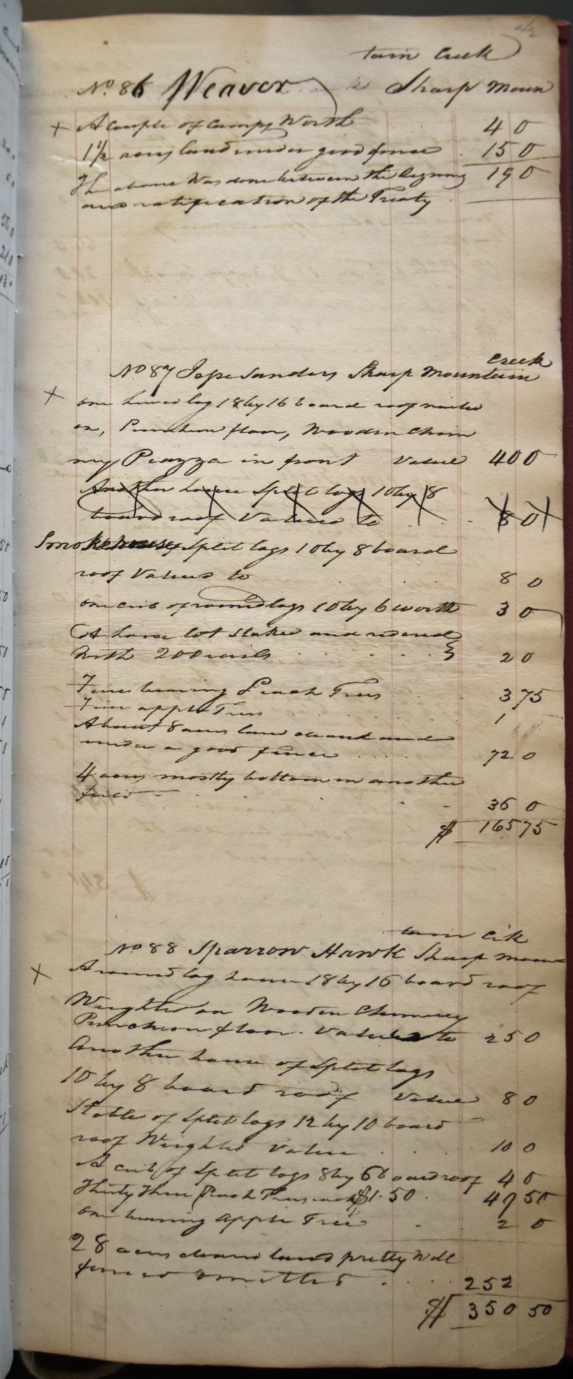 tain Creek
No. 86 Weaver Sharp Moun
x A Couple of Camps Worth 4 0
1½ acres land under good fence 15 0
The above Was done between the Signing 19 0
and ratification of the Treaty
Creek
No 87 Jesse Sanders Sharp Mountain
x one hewed log 18 by 16 board roof nailed
on, Puncheon floor, Wooden Chim
ney Piazza in front Value 40 0
Another house Split logs 10 by 8
board roof Valued to 8 0
Smokehouse Split logs 10 by 8 board
roof Valued to 8 0
one crib of round logs 10 by 6 worth 3 0
A horse lot Staked and ridered
With 200 rails 2 0
7 fine bearing Peach Trees 3 75
7 fine apple Trees 1
About 8 acres land cleared and
under a good fence 72 0
4 acres mostly bottom in another
field 36 0
$ 165 75
tain Crk
No 88 Sparrow Hawk Sharp Moun
x A round log house 18 by 16 board roof
Weighted on Wooden Chimney
Puncheon floor. Valued to 25 0
Another house of Split logs
10 by 8 board roof Value 8 0
Stable of Split logs 12 by 10 board
roof Weighted Value 10 0
A crib of Split logs 8 by 6 board roof 4 0
Thirty Three Peach Trees $1.50 49 50
one bearing apple Tree 2 0
28 acres cleared land pretty Well
fenced 252
$ 350 50